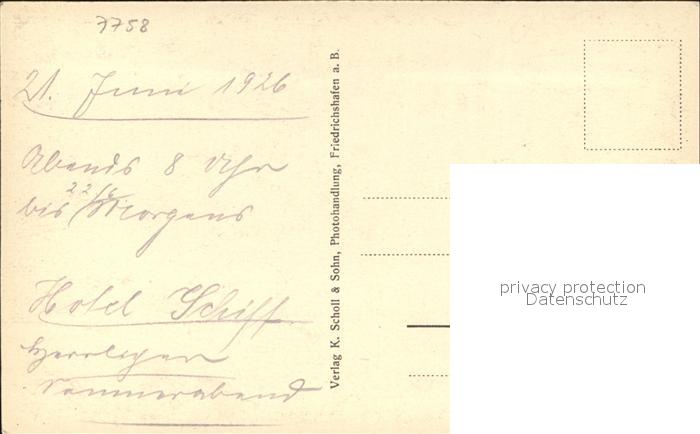 7758
21. Juni 1926
Abends 8 Uhr
22/6
bis Morgens
Hotel Schiff
Herrlicher
Sommerabend
Verlag K. Scholl & Sohn, Photohandlung, Friedrichshafen a. B.
privacy protection
Datenschutz